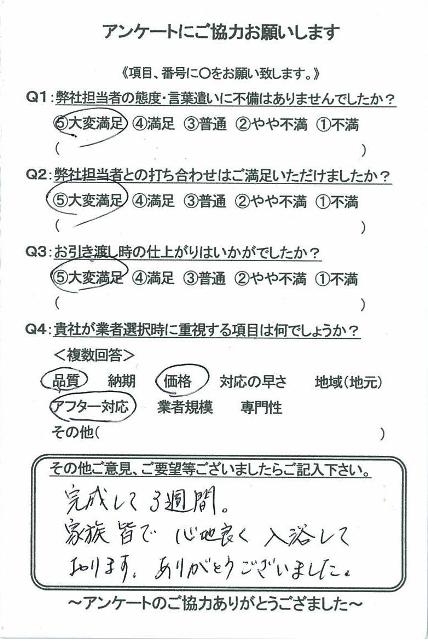 アンケートにご協力お願いします
《項目、番号に○をお願い致します。》
Q1:弊社担当者の態度・言葉遣いに不備はありませんでしたか？
⑤大変満足 ④満足 ③普通 ②やや不満 ①不満
( )
Q2:弊社担当者との打ち合わせはご満足いただけましたか？
⑤大変満足 ④満足 ③普通 ②やや不満 ①不満
( )
Q3:お引き渡し時の仕上がりはいかがでしたか？
⑤大変満足 ④満足 ③普通 ②やや不満 ①不満
( )
Q4:貴社が業者選択時に重視する項目は何でしょうか？
＜複数回答＞
品質 納期 価格 対応の早さ 地域(地元)
アフター対応 業者規模 専門性
その他( )
その他ご意見、ご要望等ございましたらご記入下さい。
完成して3週間。
家族皆で 心地良く 入浴して
おります。ありがとうございました。
～アンケートのご協力ありがとうござました～